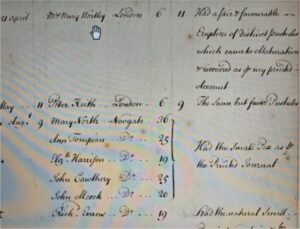 21 April Mr Mary Wortley London 6 11 Had a fair & favourable
Eruption of distinct pustules
which came to Maturation
& recovered as pr my printed
Account
May 11 Peter Keith London 6 9 The Same but fewer Pustules
Augt 9 Mary North Newgate 36
Ann Tompion Do 25
Elizh Harrison Do 19 Had the Small Pox as pr
the Printed Journal
John Cawthery Do 25
John Alcock Do 20
Rich. Evans Do 19 Had the natural Small